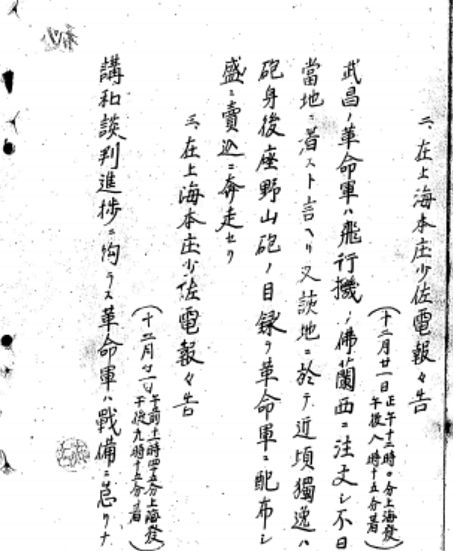 二、在上海本庄少佐電報々告
(十二月廿一日正午十二時〇分上海發
午後八時十五分着)
武昌ノ革命軍ハ飛行機ヲ佛蘭西ニ注文シ不日
當地ニ着スト言ヘリ又該地ニ於テ近頃獨逸ハ
砲身後座野山砲ノ目録ヲ革命軍ニ配布シ
盛ニ賣込ニ奔走セリ
三、在上海本庄少佐電報々告
(十二月廿一日午前十時四十五分上海發
午後九時十五分着)
講和談判進捗ニ拘ラス革命軍ハ戰備ニ怠リナ